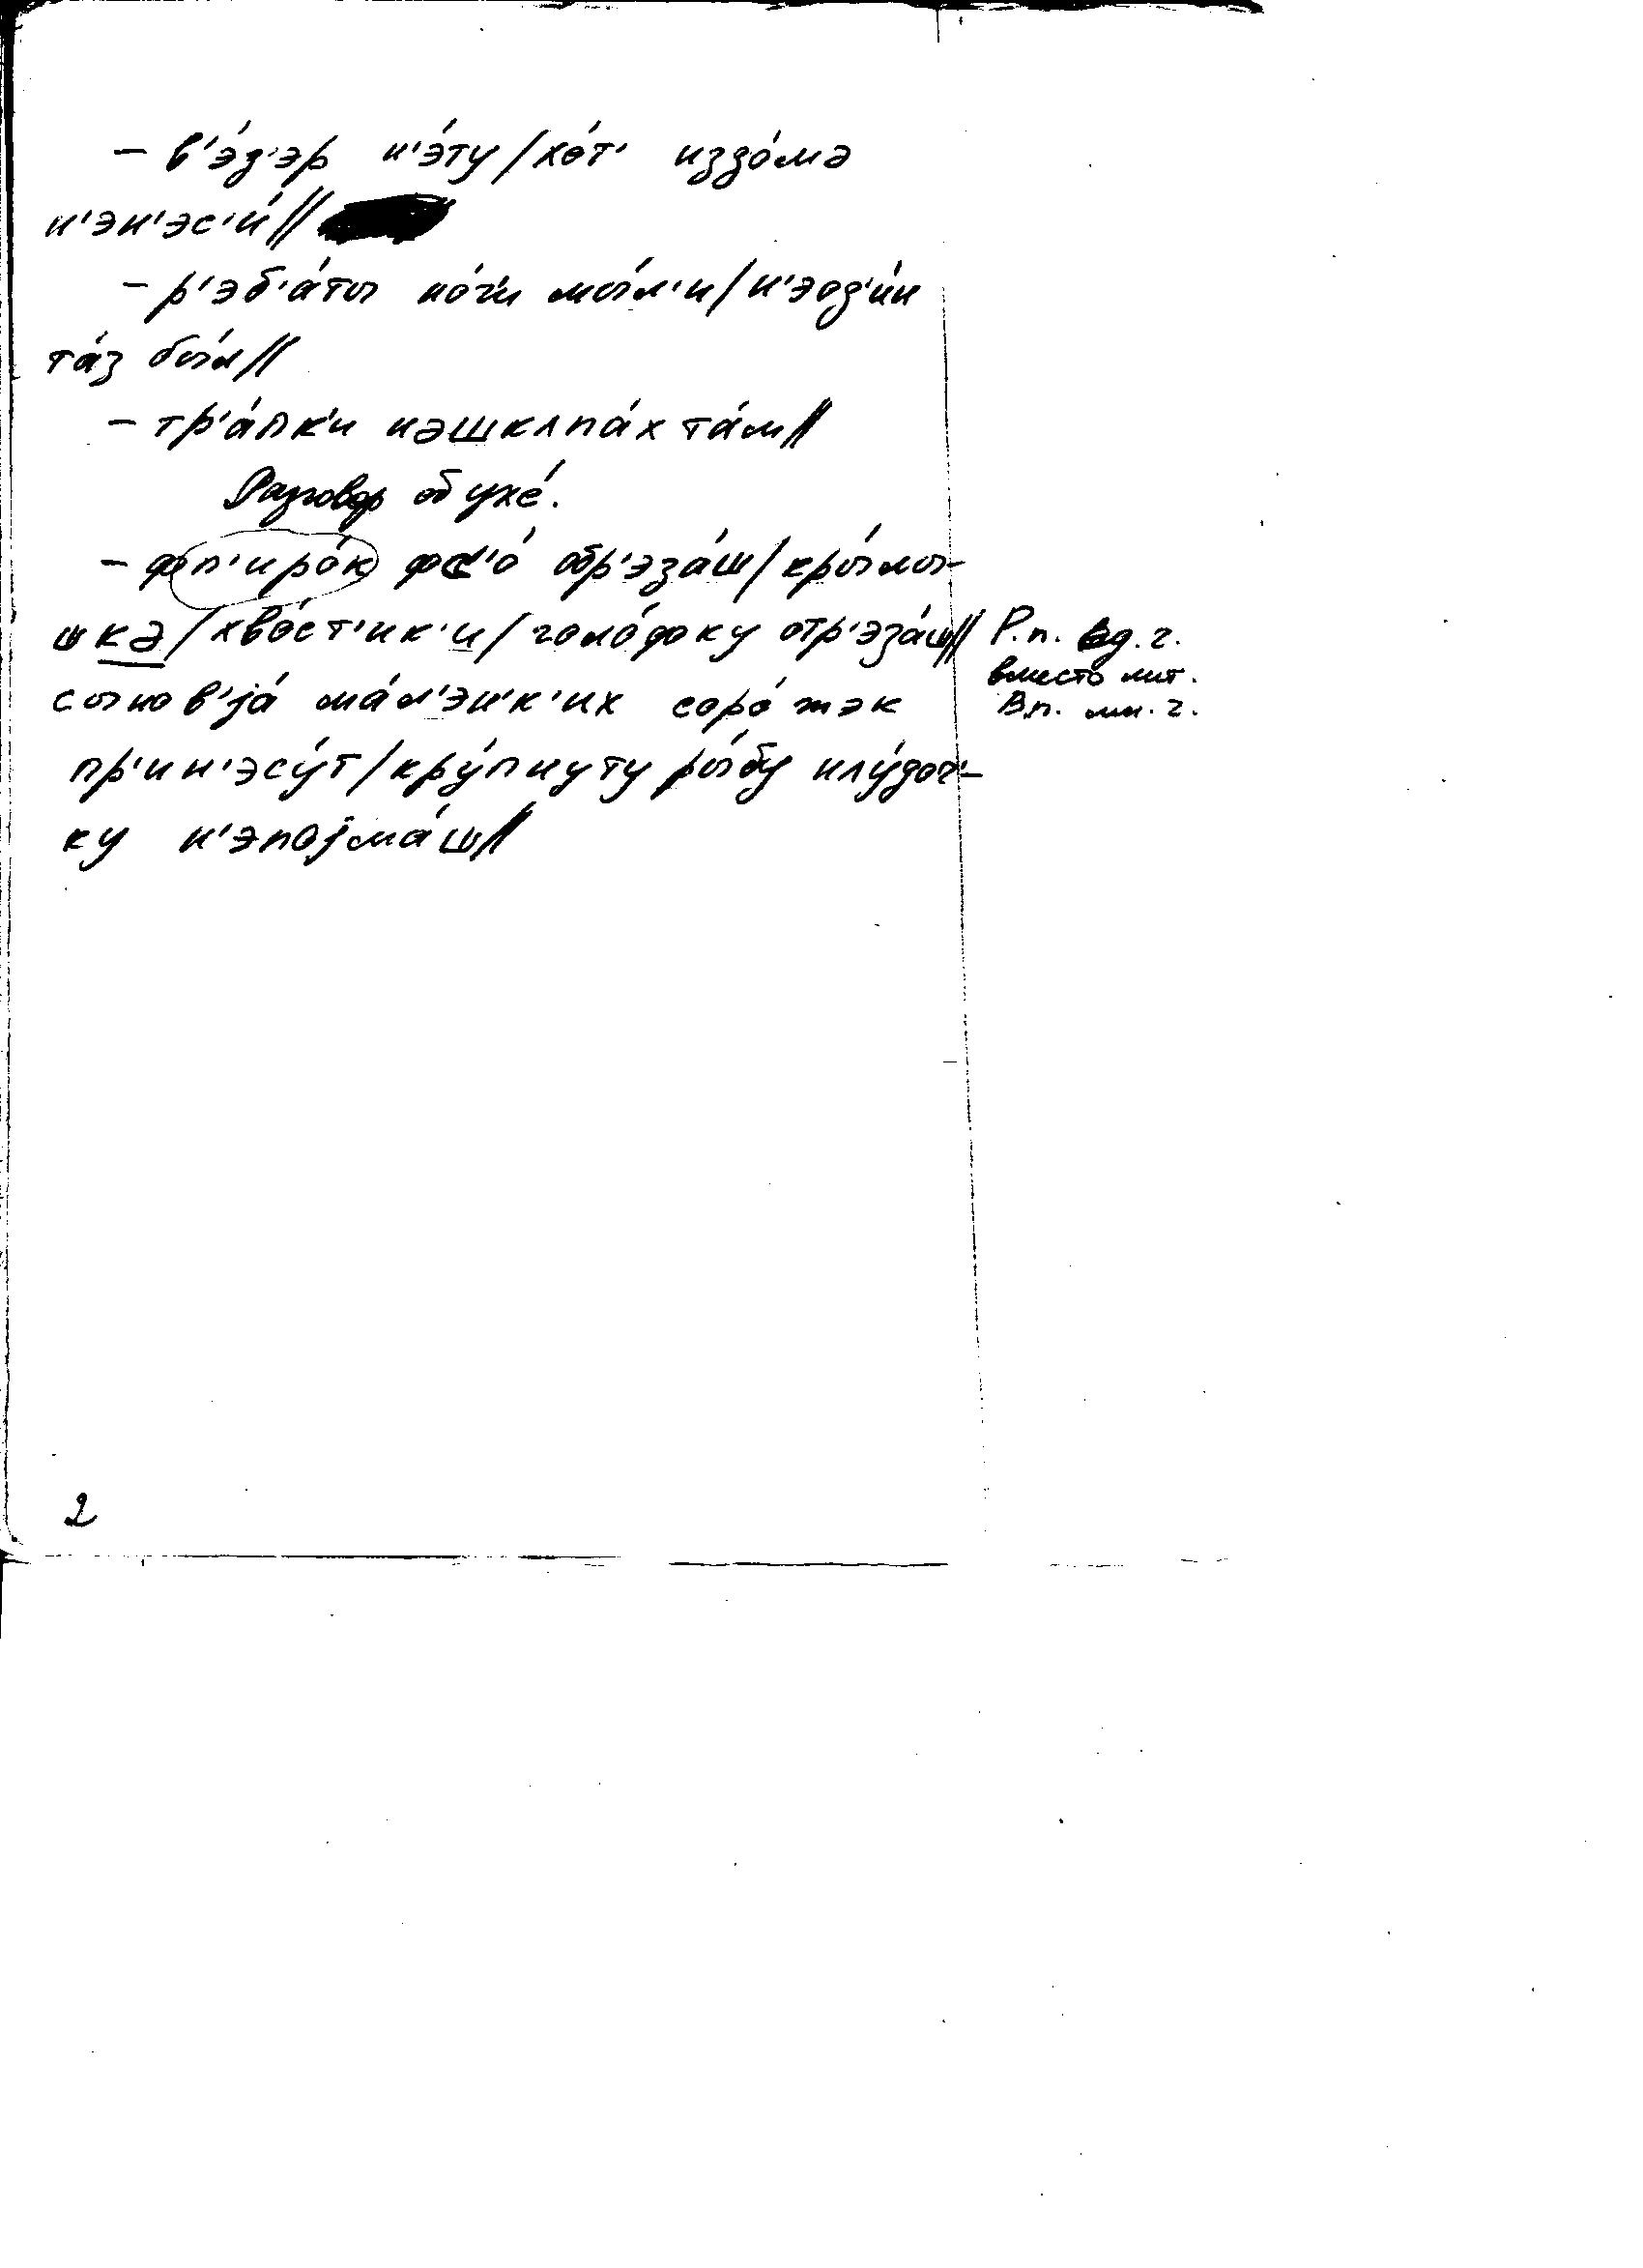 – в'э́д'эр н'э́ту / хо́т'иззо́мə
н'эн'эс'и́ //
– р'эб'а́ты но́г'и мы́л'и / н'эод'и́н
та́з бы́л //
– тр'а́пк'и нəшкʌпа́х та́м //
Разговор об ухе́.
– фп'иро́к фс'о́ обр'эза́ш / кры́лы-
шкə / хво́ст'ик'и / голо́фку отр'эза́ш // Р.п. ед. ч.
вместо лит.
сынов'jа́ ма́л'эн'к'их соро́жэк В.п. мн. ч.
пр'ин'эсу́т / кру́пнуту ры́бу нʌу́доч'-
ку н'эпоjма́ш //
2